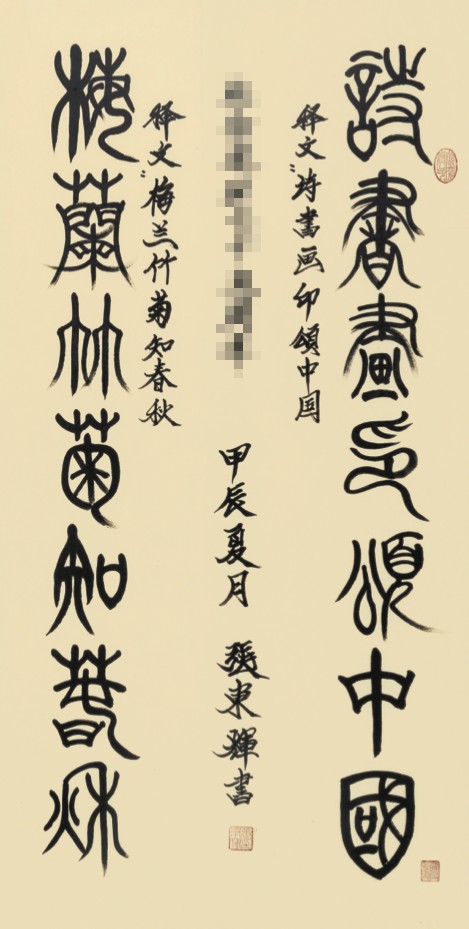 詩書畫印頌中國
释文：诗書画印頌中国
甲辰夏月 張東輝書
释文：梅兰竹菊知春秋
梅蘭竹菊知春秋